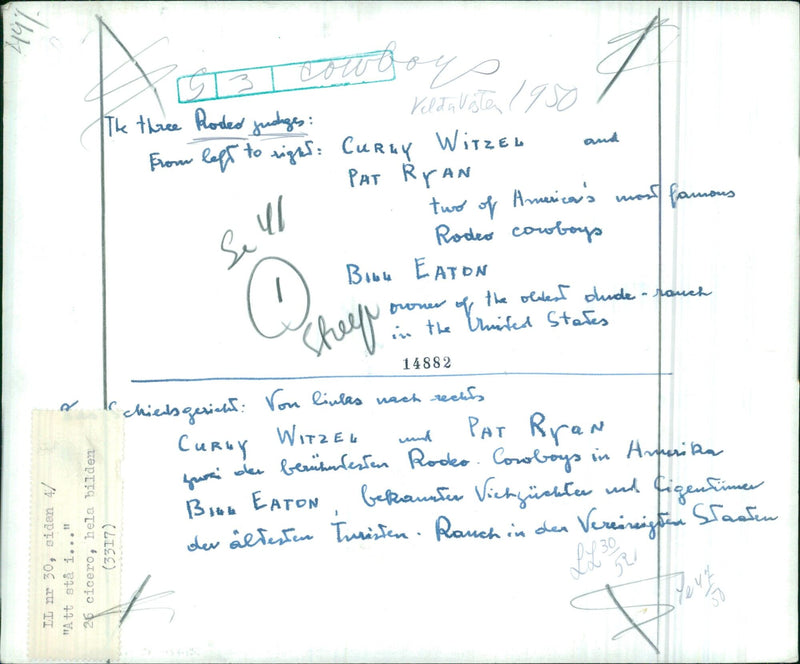 44%
S 3 cowboys
Vilda Västern 1950
The three Rodeo judges:
From left to right: CURLY WITZEL and
PAT RYAN
two of America's most famous
Rodeo cowboys
Se 41
1
BILL EATON
owner of the oldest dude-ranch
in the United States
14882
Schiedsgericht: Von links nach rechts
CURLY WITZEL und PAT RYAN
zwei der berühmtesten Rodeo-Cowboys in Amerika
BILL EATON, bekannter Viehzüchter und Eigentümer
der ältesten Turisten-Ranch in den Vereinigten Staaten
LL nr 30, sidan 4/
"Att stå i..."
26 cicero, hela bilden
(3317)
LL 30
521
Se 47
50